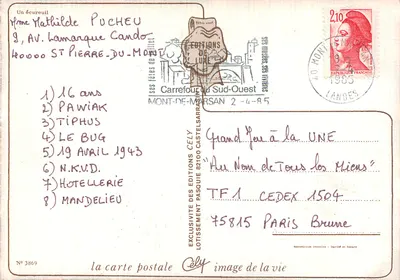 Un Ecureuil
Mme Mathilde PUCHEU
9, AV. Lamarque Cando
40000 ST PIERRE-DU-MONT
1) 16 ans
2) PAWIAK
3) TIPHUS
4) LE BUG
5) 19 AVRIL 1943
6) N.K.V.D.
7) HOTELLERIE
8) MANDELIEU
N° 2069
EDITIONS
DE
LUXE
Carrefour du Sud-Ouest
MONT-DE-MARSAN 2-4-85
2,10
40 MONT
1985
LANDES
EXCLUSIVITE DES EDITIONS CELY
LOTISSEMENT PASQUIE 82100 CASTELSARRASIN
Grand Jeu à la UNE
"Au Nom de Tous les Miens"
TF1 CEDEX 1504
75815 PARIS Brune
la carte postale Cely image de la vie